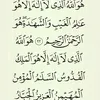 هُوَ ٱللَّهُ ٱلَّذِي لَآ إِلَٰهَ إِلَّا هُوَ
عَٰلِمُ ٱلْغَيْبِ وَٱلشَّهَٰدَةِ هُوَ
ٱلرَّحْمَٰنُ ٱلرَّحِيمُ ٢٢ هُوَ ٱللَّهُ
ٱلَّذِي لَآ إِلَٰهَ إِلَّا هُوَ ٱلْمَلِكُ
ٱلْقُدُّوسُ ٱلسَّلَٰمُ ٱلْمُؤْمِنُ
ٱلْمُهَيْمِنُ ٱلْعَزِيزُ ٱلْجَبَّارُ